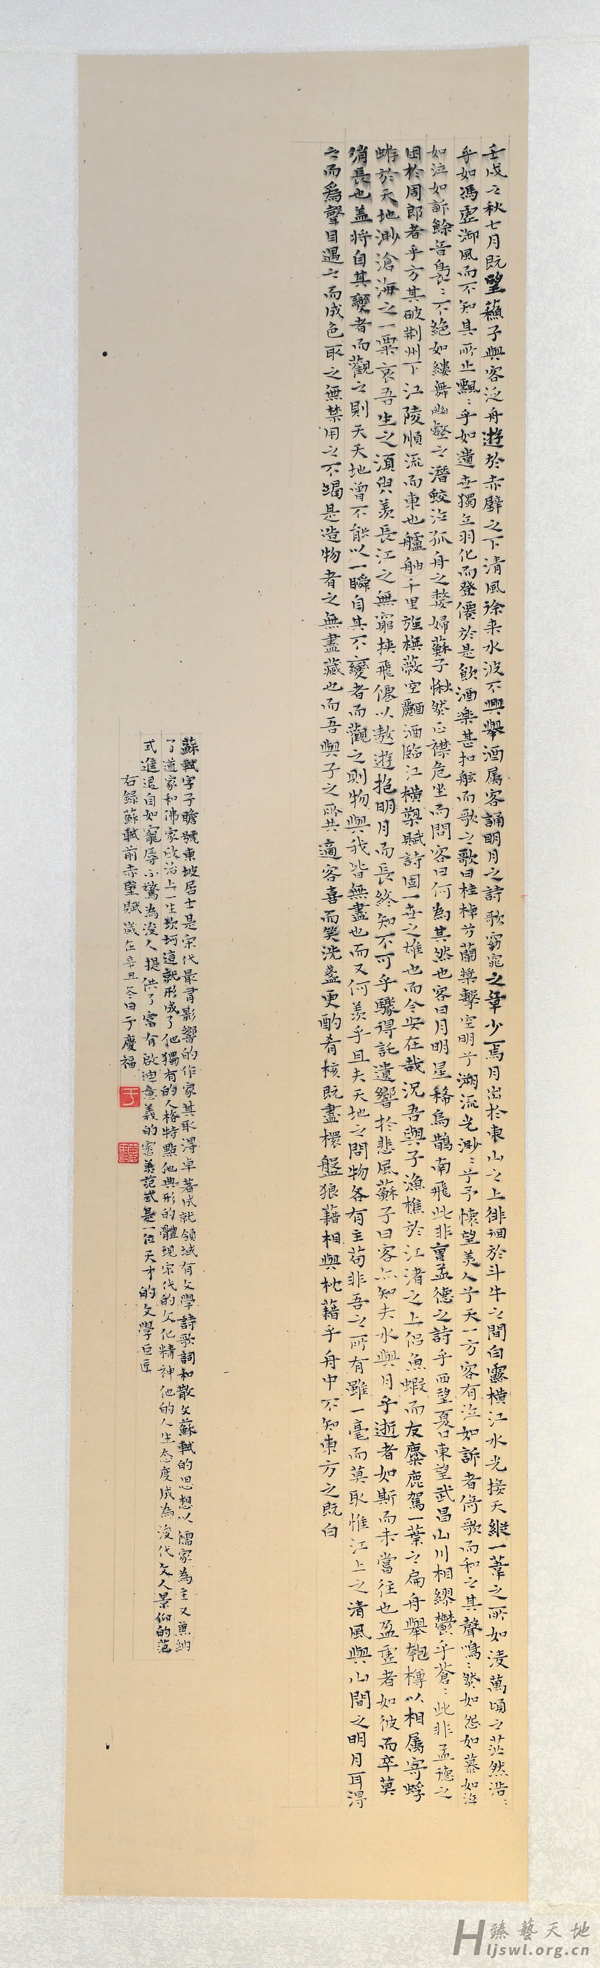 壬戌之秋七月既望蘇子與客泛舟遊於赤壁之下清風徐来水波不興舉酒属客誦明月之詩歌窈窕之章少焉月出於東山之上徘徊於斗牛之間白露横江水光接天縱一葦之所如凌萬頃之茫然浩:
乎如馮虚御風而不知其所止飄:乎如遺世獨立羽化而登僊於是飲酒樂甚扣舷而歌之歌曰桂棹兮蘭槳擊空明兮溯流光渺:兮予懷望美人兮天一方客有泣如訴者倚歌而和之其聲鳴:然如怨如慕如泣
如泣如訴餘音裊:不絶如縷舞幽壑之潛蛟泣孤舟之嫠婦蘇子愀然正襟危坐而問客曰何為其然也客曰月明星稀烏鵲南飛此非曹孟德之詩乎西望夏口東望武昌山川相繆鬱乎蒼:此非孟德之
困於周郎者乎方其破荆州下江陵順流而東也艫舳千里旌旗蔽空釃酒臨江横槊賦詩固一世之雄也而今安在哉況吾與子漁樵於江渚之上侣魚蝦而友麋鹿駕一葉之扁舟舉匏樽以相属寄蜉
蝣於天地渺滄海之一粟哀吾生之須臾羨長江之無窮挟飛僊以遨遊抱明月而長終知不可乎驟得託遺響於悲風蘇子曰客亦知夫水與月乎逝者如斯而未嘗往也盈虚者如彼而卒莫
消長也盖将自其變者而觀之則天天地曾不能以一瞬自其不變者而觀之則物與我皆無盡也而又何羨乎且夫天地之間物各有主苟非吾之所有雖一毫而莫取惟江上之清風與山間之明月耳得
之而為聲目遇之而成色取之無禁用之不竭是造物者之無盡藏也而吾與子之所共適客喜而笑洗盞更酌肴核既盡杯盤狼藉相與枕藉乎舟中不知東方之既白
蘇軾字子瞻號東坡居士是宋代最有影響的作家其取得卓著成就领域有文學詩歌詞和散文蘇軾的思想以儒家為主又兼納
了道家和佛家政治上一生坎坷這就形成了他獨有的人格特點他典形的體現宋代的文化精神他的人生态度成為後代文人景仰的范
式進退自如寵辱不驚為後人提供了富有啟迪意義的審美范式是一位天才的文學巨匠
右錄蘇軾前赤壁賦歲在辛丑冬日于慶福
臻藝天地
Hljswl.org.cn